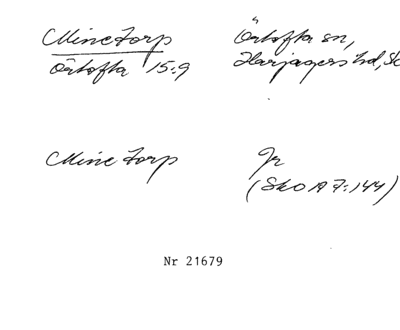 Minetorp Örtofta sn,
Örtofta 15:9 Harjagers hd, Sk
Minetorp Jr
(SkO A 7:144)
Nr 21679